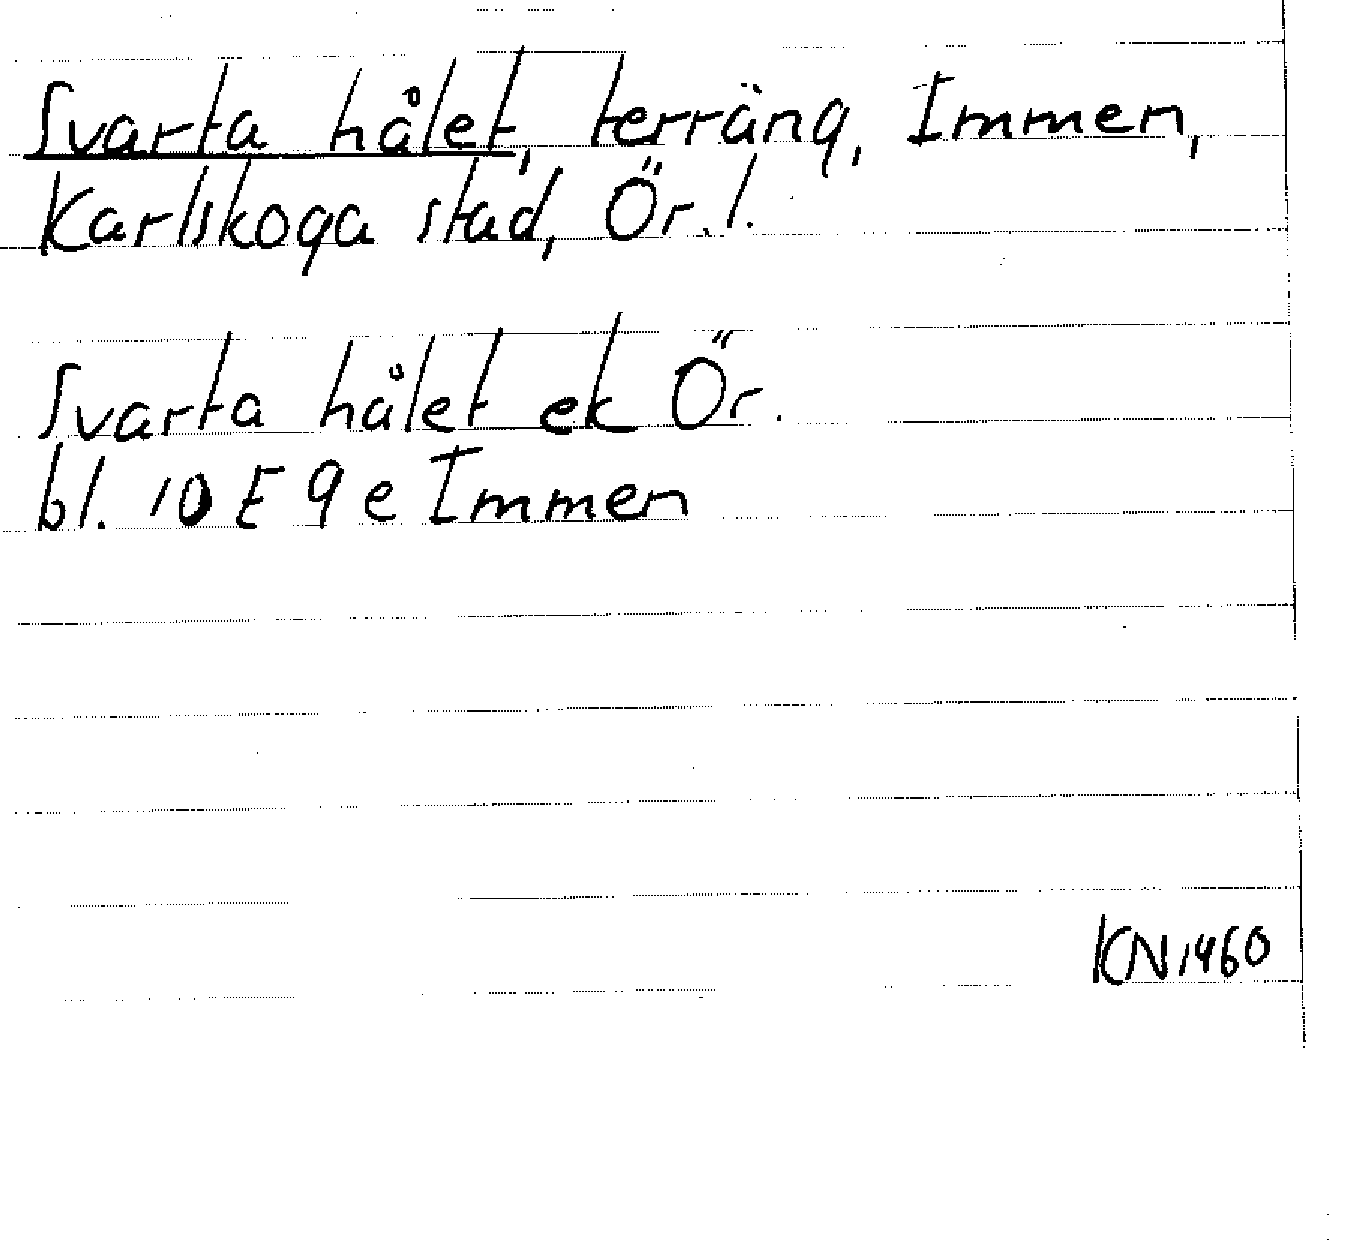 Svarta hålet, terräng, Immen,
Karlskoga stad, Ör. l.
Svarta hålet ek Ör.
bl. 10 E 9 e Immen
KN 1460